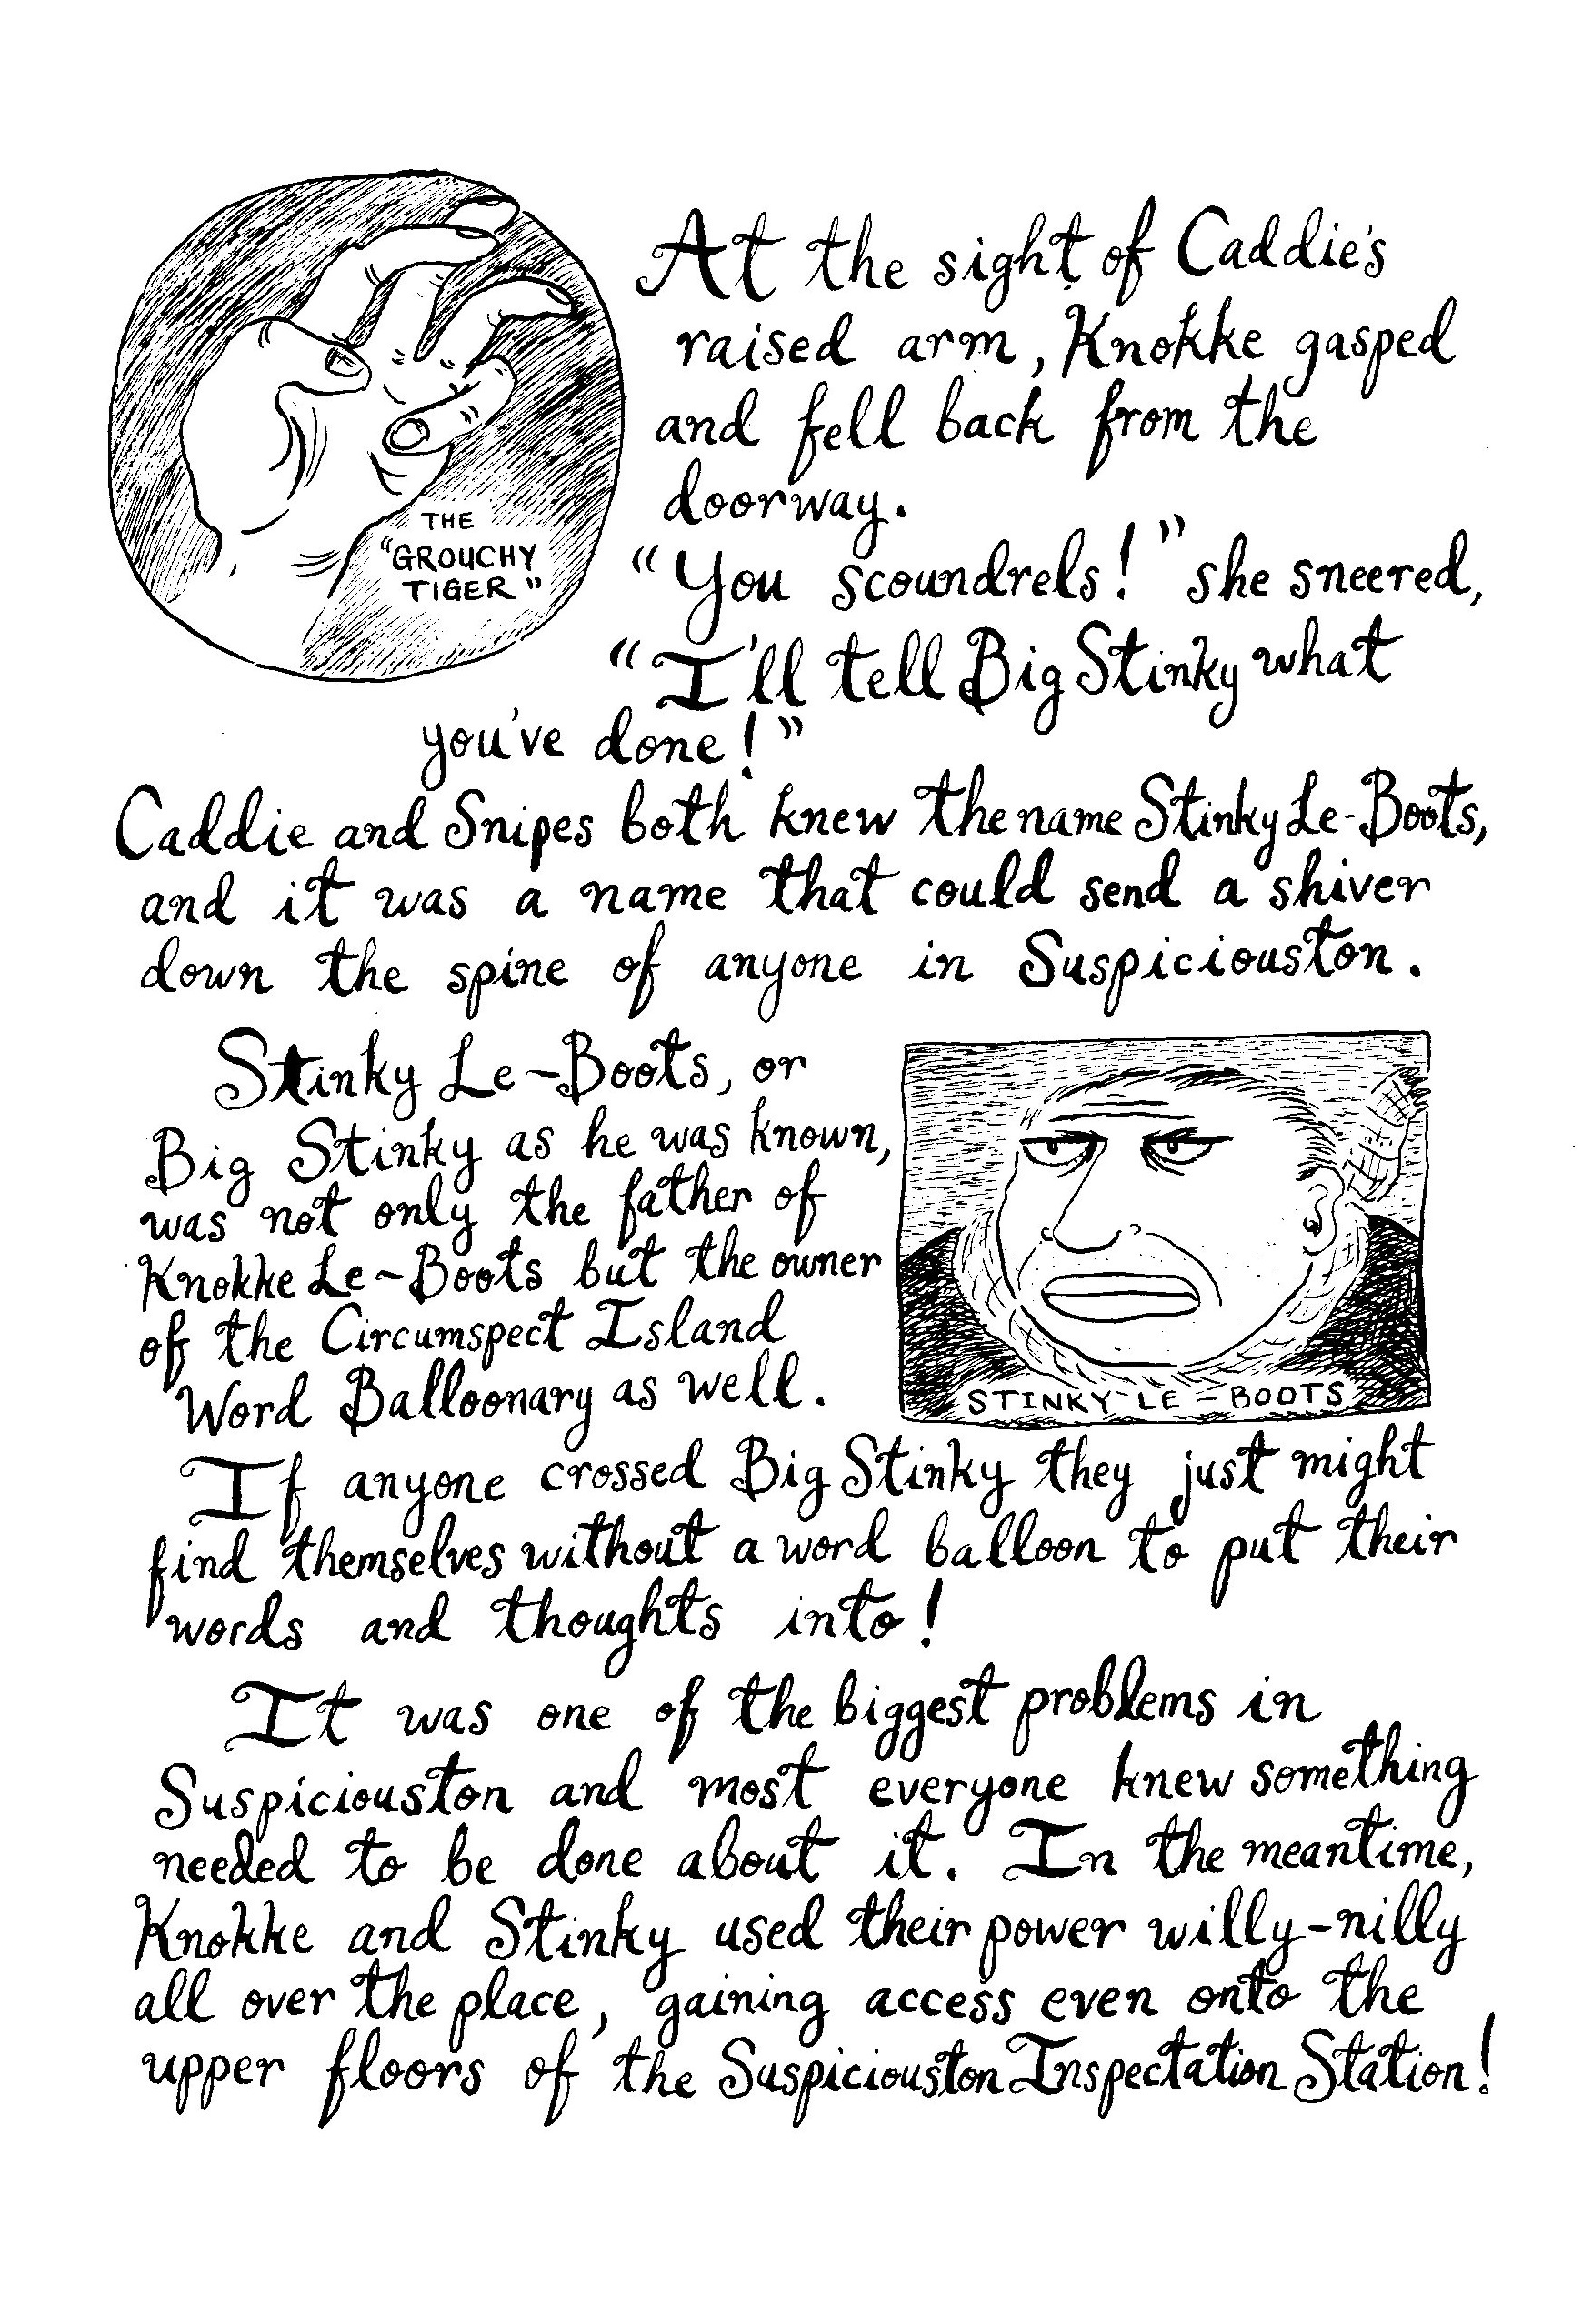 THE
"GROUCHY
TIGER"
At the sight of Caddie's
raised arm, Knokke gasped
and fell back from the
doorway.
"You scoundrels!" she sneered,
"I'll tell Big Stinky what
you've done!"
Caddie and Snipes both knew the name Stinky Le-Boots,
and it was a name that could send a shiver
down the spine of anyone in Suspiciouston.
Stinky Le-Boots, or
Big Stinky as he was known,
was not only the father of
Knokke Le-Boots but the owner
of the Circumspect Island
Word Balloonary as well.
STINKY LE-BOOTS
If anyone crossed Big Stinky they just might
find themselves without a word balloon to put their
words and thoughts into!
It was one of the biggest problems in
Suspiciouston and most everyone knew something
needed to be done about it. In the meantime,
Knokke and Stinky used their power willy-nilly
all over the place, gaining access even onto the
upper floors of the Suspiciouston Inspectation Station!